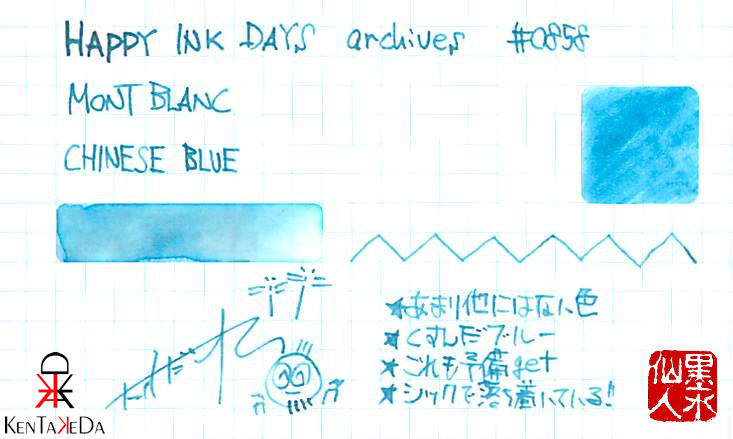 HAPPY INK DAYS archives #0858
MONT BLANC
CHINESE BLUE
★あまり他にはない色
★くすんだブルー
★これも予備get
★シックで落ち着いている!!
KENTAKEDA
墨水
仙人